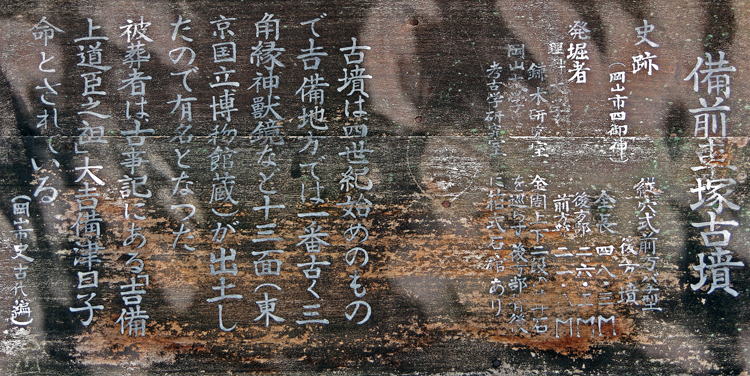 備前車塚古墳
史跡
(岡山市四御神)
発掘者
理科大学
鎌木研究室
岡山大学
考古学研究室
前方後方型
後方墳
全長 四八・三M
後方部
前方部
古墳は四世紀始めのもの
で吉備地方では一番古く三
角縁神獣鏡など十三面(東
京国立博物館蔵)が出土し
たので有名となった
被葬者は古事記にある「吉備
上道臣之祖」大吉備津日子
命とされている
(岡山市史古代編)